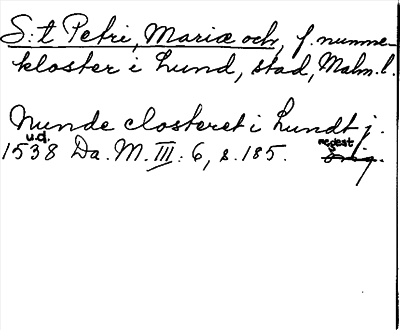 S:t Petri, Mariæ och, f. nunne-
kloster i Lund, stad, Malm. l.
Nunde closteret i Lundt j.
u.d. regest
1538 Da. M. III: 6, s. 185. orig.